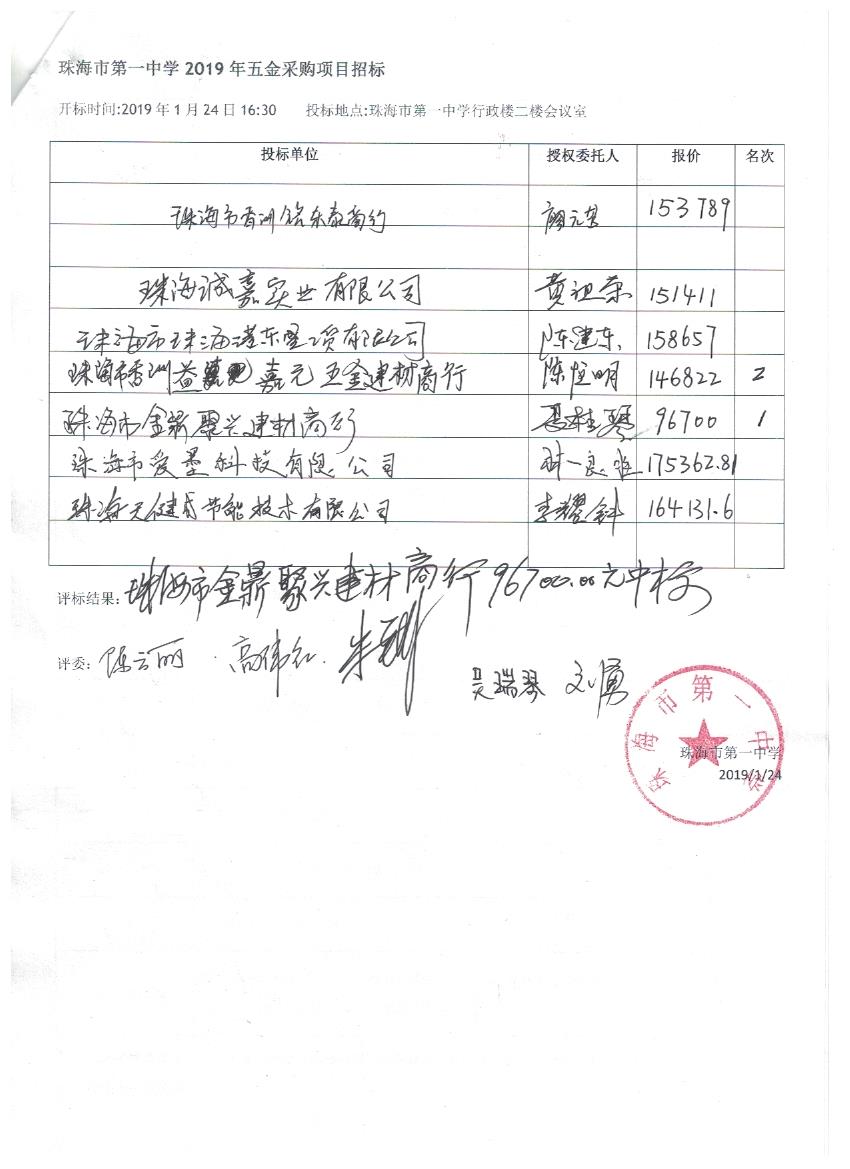 珠海市第一中学 2019 年五金采购项目招标
开标时间:2019 年 1 月 24 日 16:30 投标地点:珠海市第一中学行政楼二楼会议室
投标单位 授权委托人 报价 名次
珠海市香洲铭乐泰商行 153789
珠海诚嘉实业有限公司 黄祖荣 151411
珠海市珠海港东坚贸有限公司 陈建东 158657
珠海市香洲益 嘉元五金建材商行 陈恒明 146822 2
珠海市金鼎聚兴建材商行 桂琴 96700 1
珠海市爱墨科技有限公司 175362.81
珠海天健舟节能技术有限公司 李耀钭 164131.6
评标结果: 珠海市金鼎聚兴建材商行 96700.00元中标
评委: 陈云丽 高伟红
吴瑞琴 刘勇
珠海市第一中学
珠海市第一中学
2019/1/24